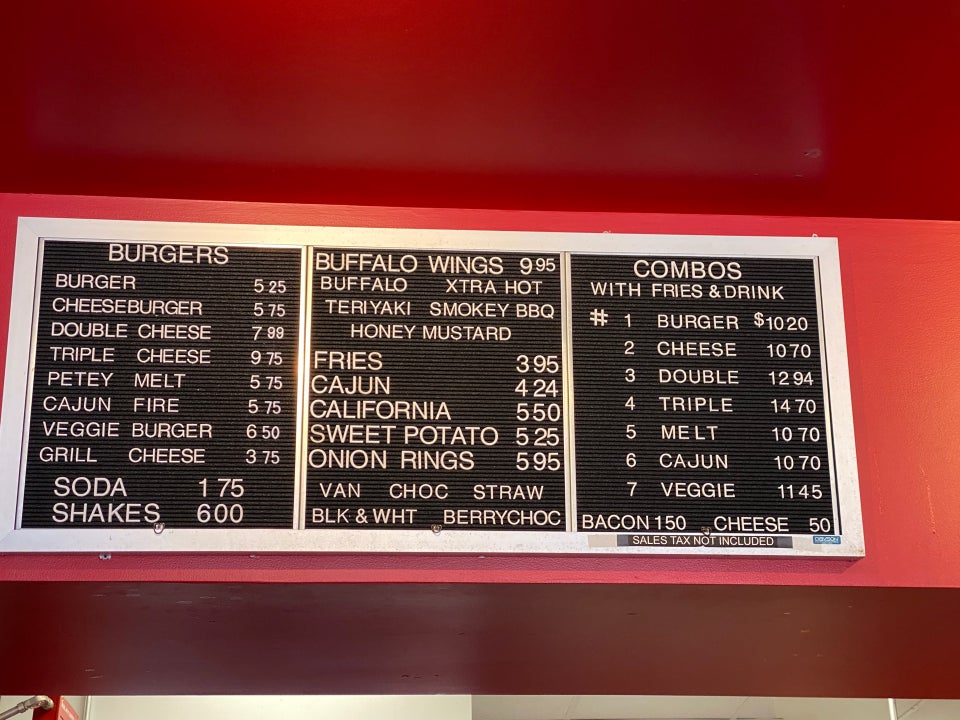 BURGERS
BURGER 5 25
CHEESEBURGER 5 75
DOUBLE CHEESE 7 99
TRIPLE CHEESE 9 75
PETEY MELT 5 75
CAJUN FIRE 5 75
VEGGIE BURGER 6 50
GRILL CHEESE 3 75
SODA 1 75
SHAKES 6 00
BUFFALO WINGS 9 95
BUFFALO XTRA HOT
TERIYAKI SMOKEY BBQ
HONEY MUSTARD
FRIES 3 95
CAJUN 4 24
CALIFORNIA 5 50
SWEET POTATO 5 25
ONION RINGS 5 95
VAN CHOC STRAW
BLK & WHT BERRYCHOC
COMBOS
WITH FRIES & DRINK
# 1 BURGER $10 20
2 CHEESE 10 70
3 DOUBLE 12 94
4 TRIPLE 14 70
5 MELT 10 70
6 CAJUN 10 70
7 VEGGIE 11 45
BACON 1 50 CHEESE 50
SALES TAX NOT INCLUDED